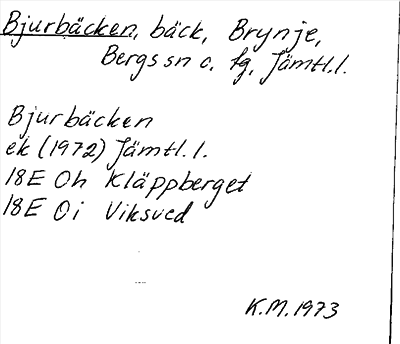 Bjurbäcken, bäck, Brynje,
Bergs sn o. tg, Jämtl.l.
Bjurbäcken
ek (1972) Jämtl.l.
18E Oh Kläppberget
18E Oi Viksved
K.M.1973